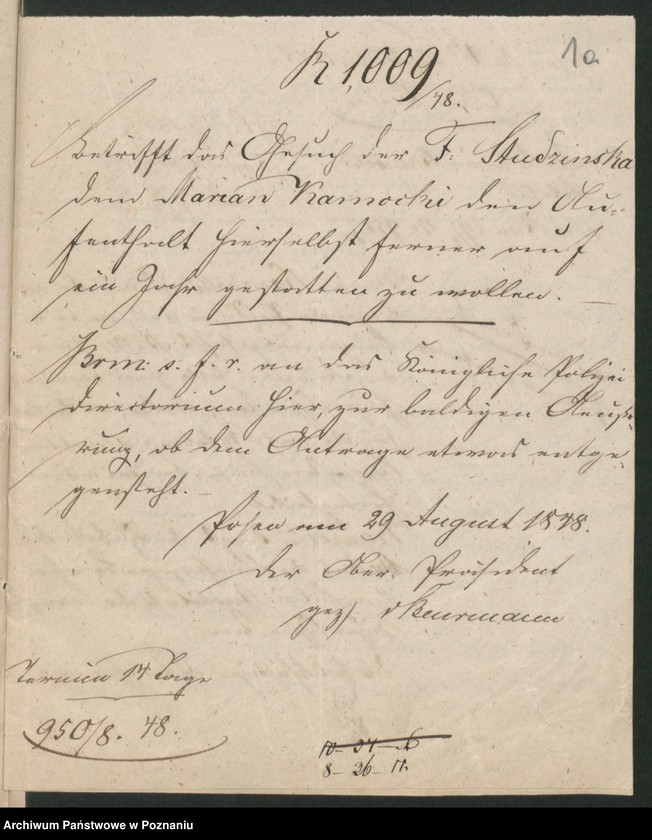 1a
K 1,009
/48.
Betrifft das Gesuch der F: Studzinska
dem Marian Kamocki den Au-
fenthalt hierselbst ferner auf
ein Jahr gestatten zu wollen. —
Brm: s. f. r. an das Königliche Polizei
Directorium hier, zur baldigen Aeuße-
rung, ob dem Antrage etwas entge-
gensteht. -
Posen am 29 August 1848.
Der Ober-Präsident
gez) v Beurmann
Termin 14 Tage
950/8. 48.
8 - 26 - 11.
Archiwum Państwowe w Poznaniu